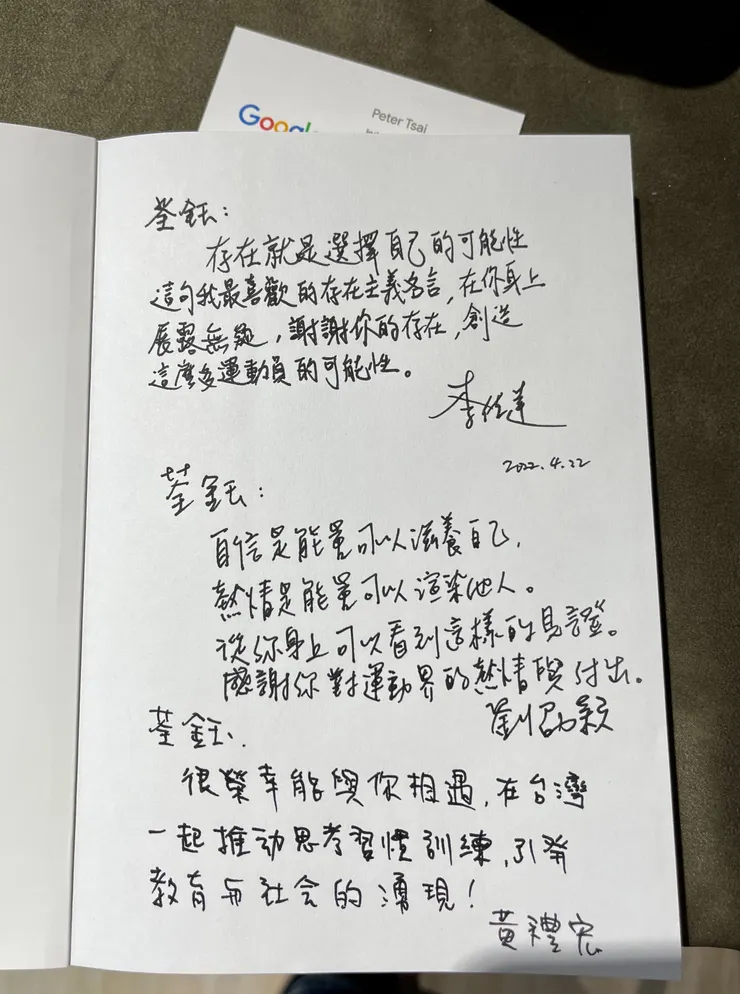 Google
Peter Tsai
荃鈺：
存在就是選擇自己的可能性
這句我最喜歡的存在主義名言，在你身上
展露無疑，謝謝你的存在，創造
這麼多運動員的可能性。
李佳達
2022.4.22
荃鈺：
自信是能量可以滋養自己，
熱情是能量可以渲染他人。
從你身上可以看到這樣的見證。
感謝你對運動界的熱情與付出。
劉劭穎
荃鈺、
很榮幸能與你相遇，在台灣
一起推动思考習慣訓練，引發
教育与社会的湧現！
黃禮宏